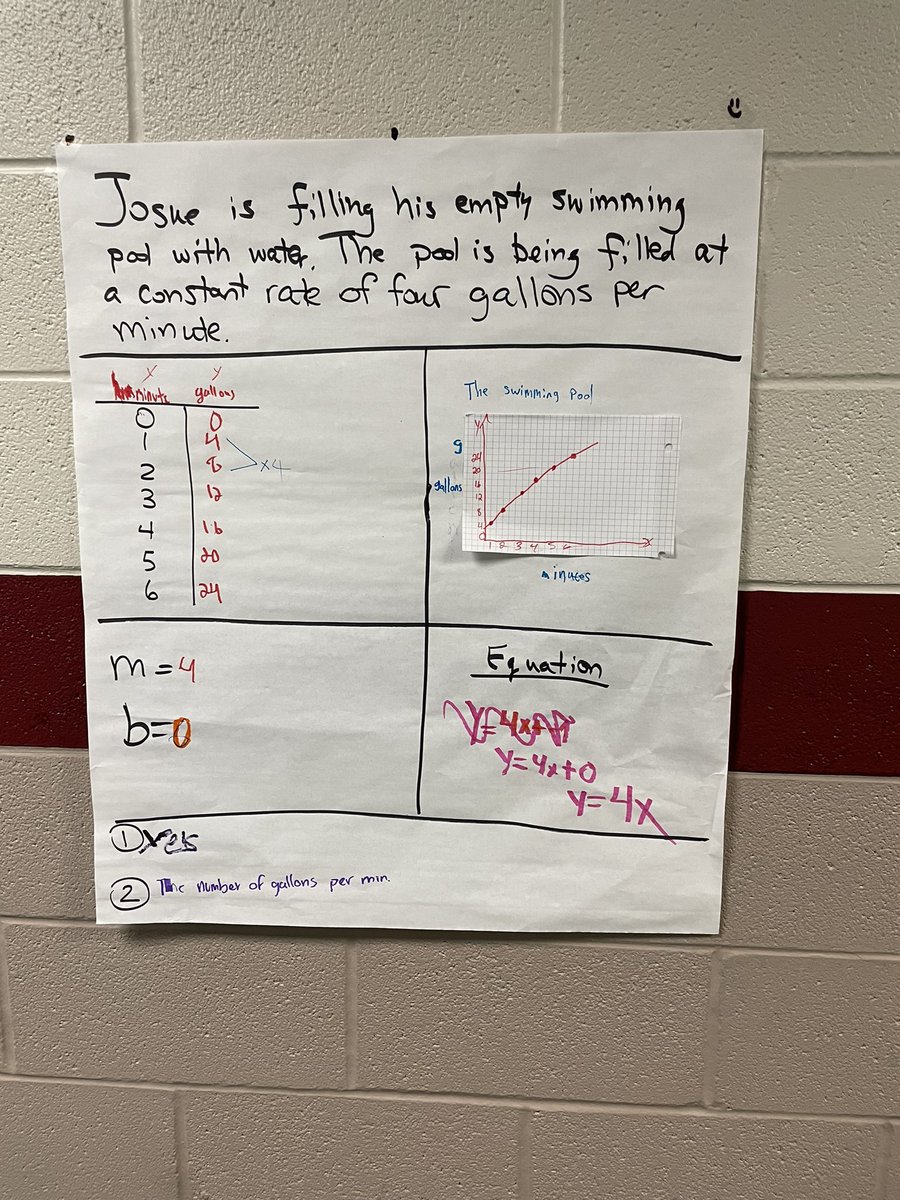 Josue is filling his empty swimming
pool with water. The pool is being filled at
a constant rate of four gallons per
minute.
x y
minute gallons
0 0
1 4
2 8
3 12
4 16
5 20
6 24
x4
The swimming Pool
y
g
gallons
24
20
16
12
8
4
0
1 2 3 4 5 6 x
minutes
m=4
b=0
Equation
y=4x+0
y=4x
1 yes
2 The number of gallons per min.